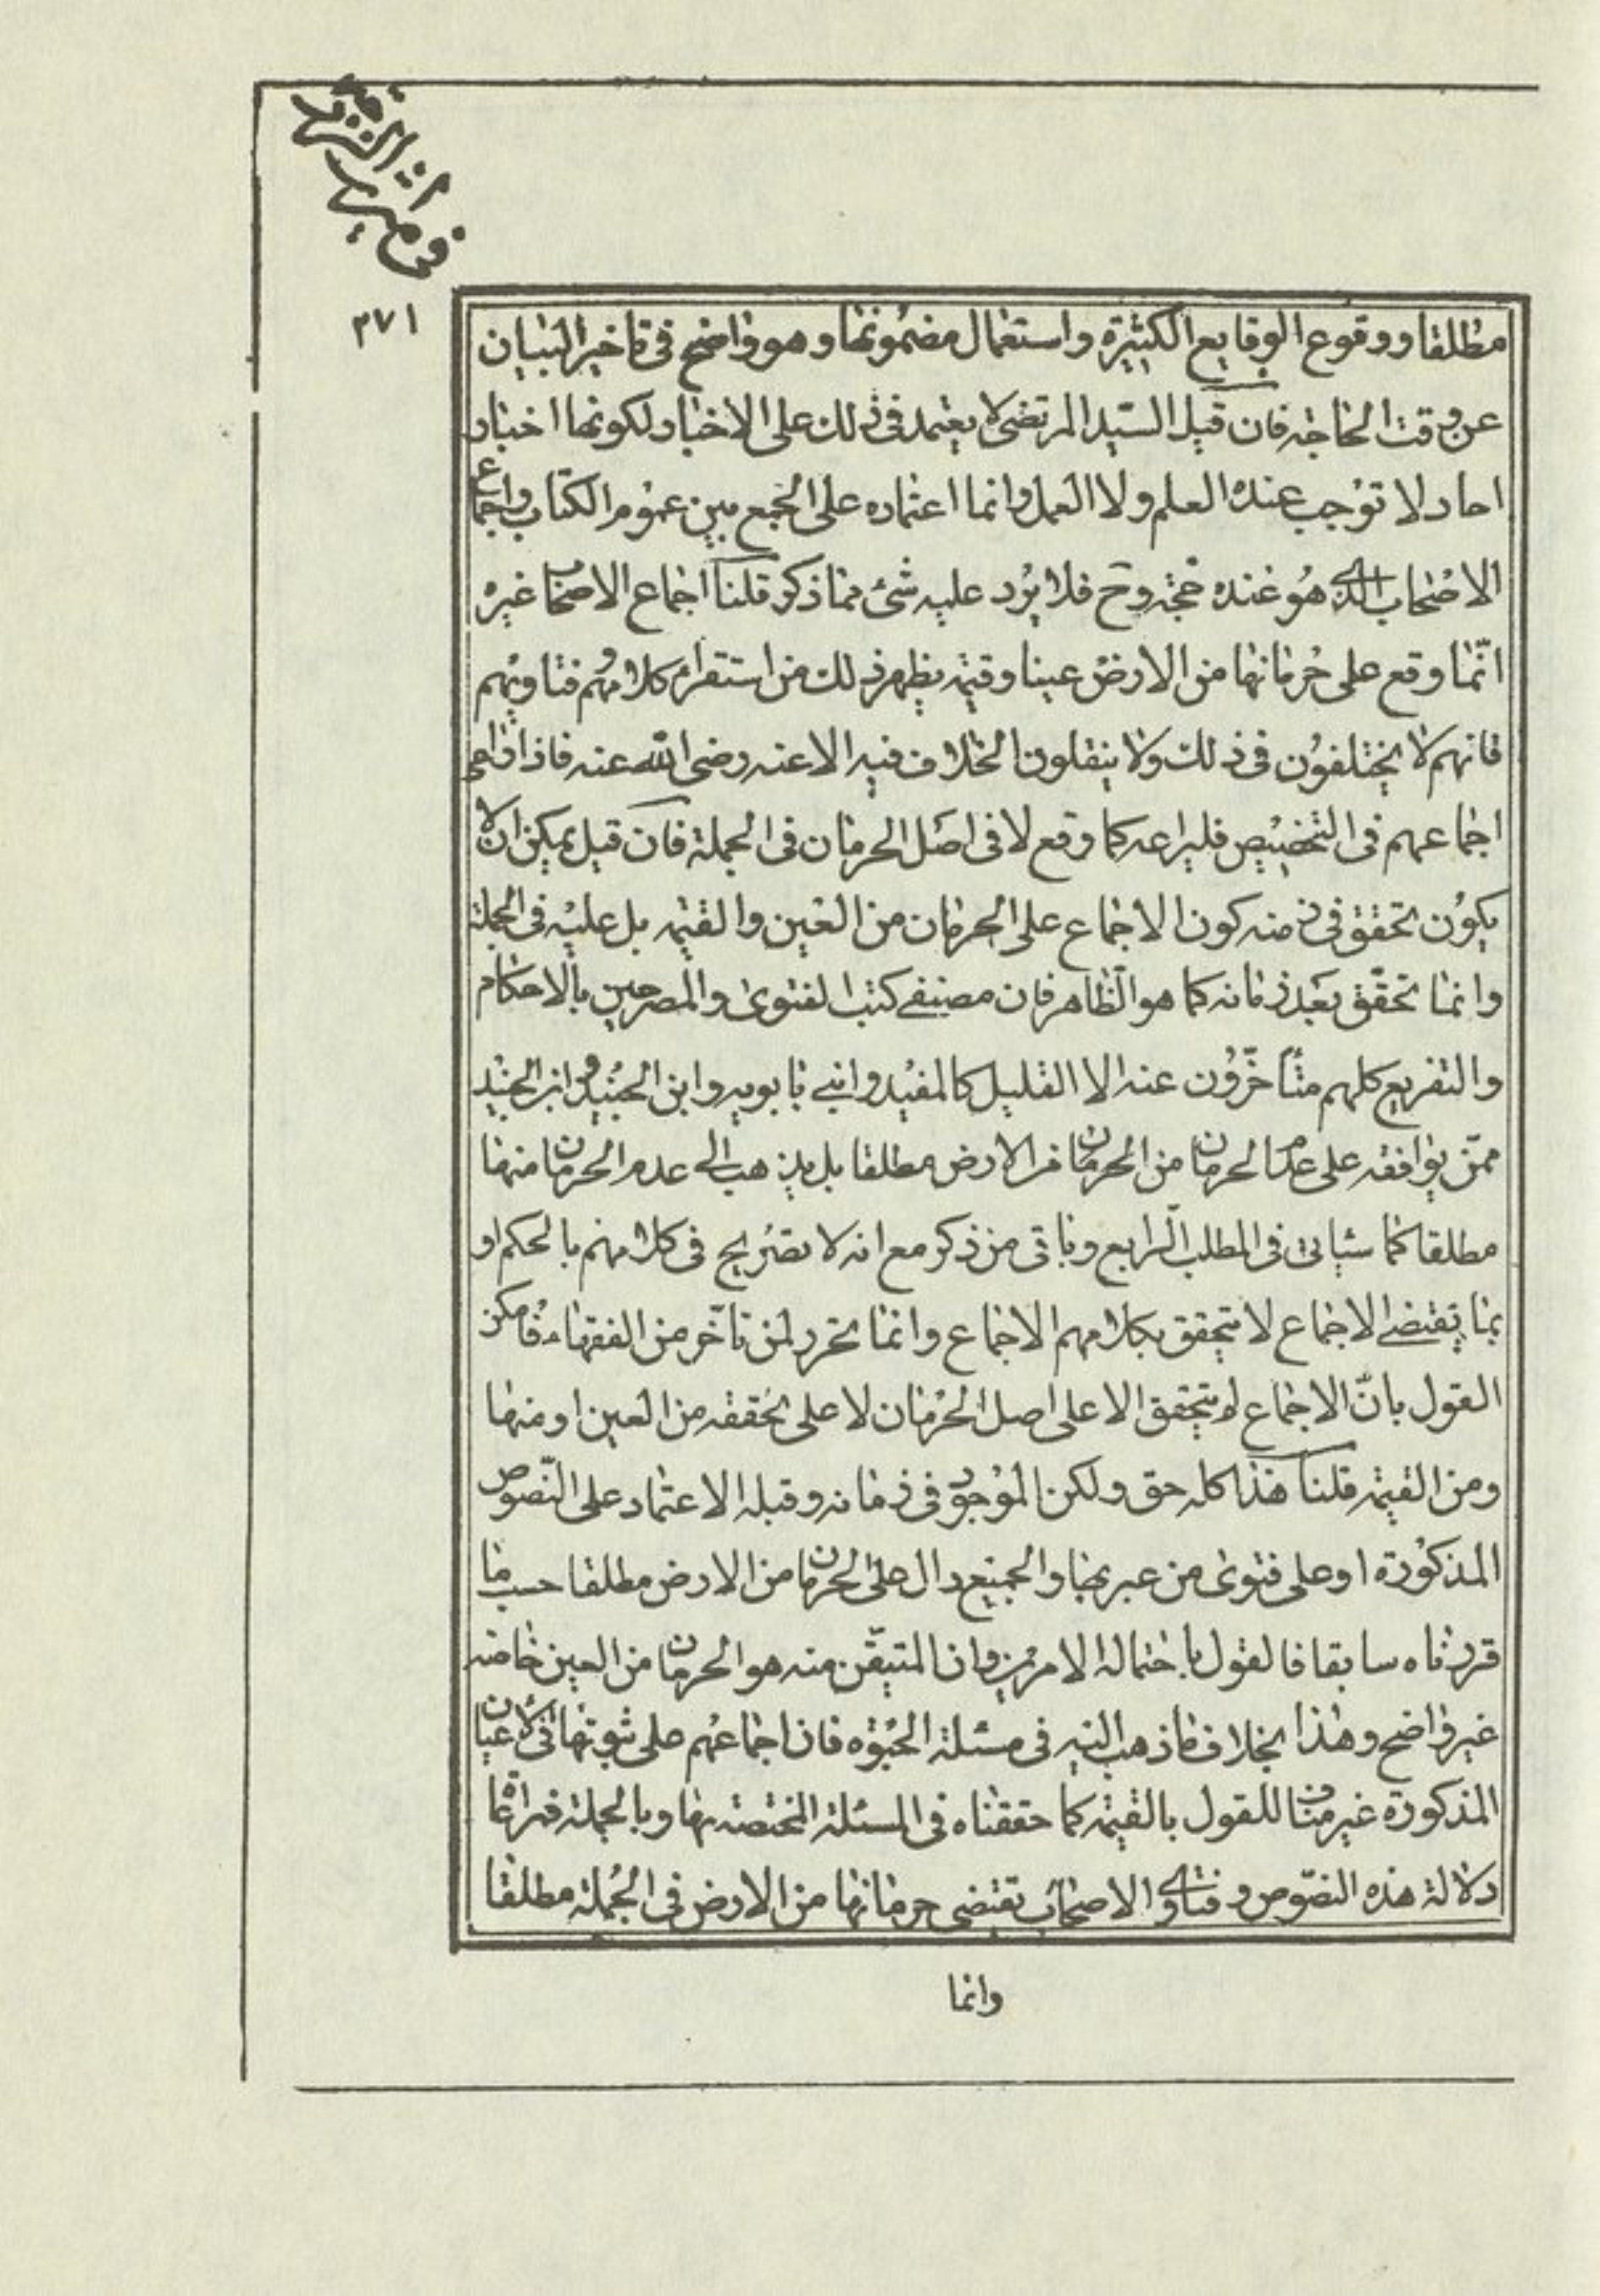 في ميراث الزوجة
٢٧١
مطلقا ووقوع الوقايع الكثيرة واستعمال مضمونها وهو واضح في تاخير البيان
عن وقت الحاجة فان قيل السيد المرتضى لا يعتمد في ذلك على الاخبار لكونها اخبار
احاد لا توجب عنده العلم ولا العمل وانما اعتماده على الجمع بين عموم الكتاب واجماع
الاصحاب الذي هو عنده حجة وح فلا يرد عليه شئ مما ذكر قلنا اجماع الاصحاب غيره
انما وقع على حرمانها من الارض عينا وقيمة يظهر ذلك من استقراء كلامهم وفتاويهم
فانهم لا يختلفون في ذلك ولا ينقلون الخلاف فيه الا عنه رضي الله عنه فاذا راعى
اجماعهم في التخصيص فليراعه كما وقع لا في اصل الحرمان في الجملة فان قيل يمكن ان لا
يكون تحقق في زمنه كون الاجماع على الحرمان من العين والقيمة بل عليه في الجملة
وانما تحقق بعد زمانه كما هو الظاهر فان مصنفي كتب الفتوى والمصرحين بالاحكام
والتفريع كلهم متأخرون عنه الا القليل كالمفيد وابني بابويه وابن الجنيد وابن الجنيد
ممن يوافقه على عدم الحرمان من الحرمان من الارض مطلقا بل يذهب الى عدم الحرمان منها
مطلقا كما سيأتي في المطلب الرابع وباقي من ذكر مع انه لا تصريح في كلامهم بالحكم او
بما يقتضي الاجماع لا يتحقق بكلامهم الاجماع وانما تحرر لمن تأخر من الفقهاء فامكن
القول بان الاجماع لم يتحقق الا على اصل الحرمان لا على تحققه من العين او منها
ومن القيمة قلنا هذا كله حق ولكن الموجود في زمانه وقبله الاعتماد على النصوص
المذكورة او على فتوى من عبر بها والجميع دال على الحرمان من الارض مطلقا حسب ما
قررناه سابقا فالقول باحتماله الامرين وان المتيقن منه هو الحرمان من العين خاصة
غير واضح وهذا بخلاف ما ذهب اليه في مسئلة الحبوة فان اجماعهم على ثبوتها في الاعيان
المذكورة غير مناف للقول بالقيمة كما حققناه في المسئلة المختصة بها وبالجملة فمراعاة
دلالة هذه النصوص وفتاوى الاصحاب تقتضي حرمانها من الارض في الجملة مطلقا
وانما